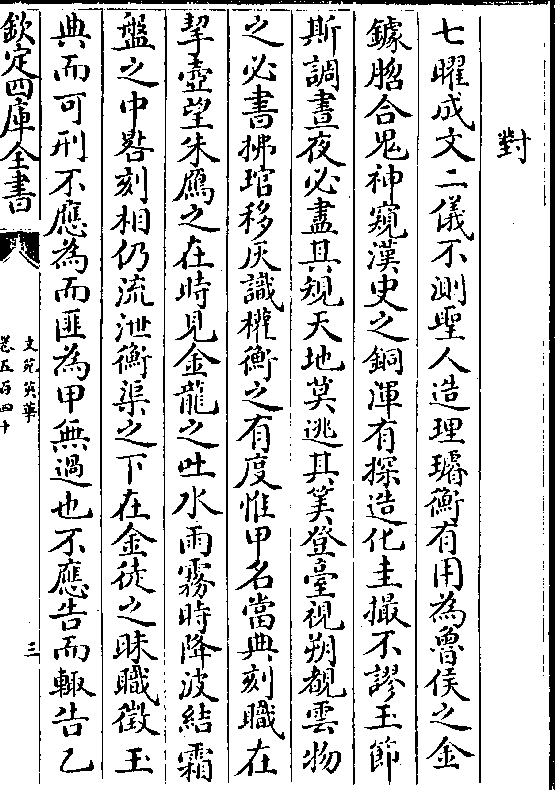 對
七曜成文二儀不測聖人造理璿衡有用為魯侯之金
鐻䏶合鬼神窺漢史之銅渾有探造化圭撮不謬玉節
斯調晝夜必盡其規天地莫逃其筭登臺視朔覩雲物
之必書拂琯移灰識權衡之有度惟甲名當典刻職在
挈壺望朱鴈之在時見金龍之吐水雨霧時降波結霜
盤之中晷刻相仍流泄衡渠之下在金徒之昧職徵玉
典而可刑不應為而匪為甲無過也不應告而輙告乙
欽定四庫全書
文苑英華
卷五百四十
三